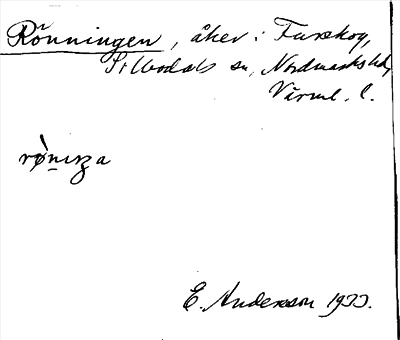 Rönningen, åker i Furskog,
Silbodals sn, Nordmarks hd,
Värml. l.
rø̀nıŋa
E. Anderson 1933.